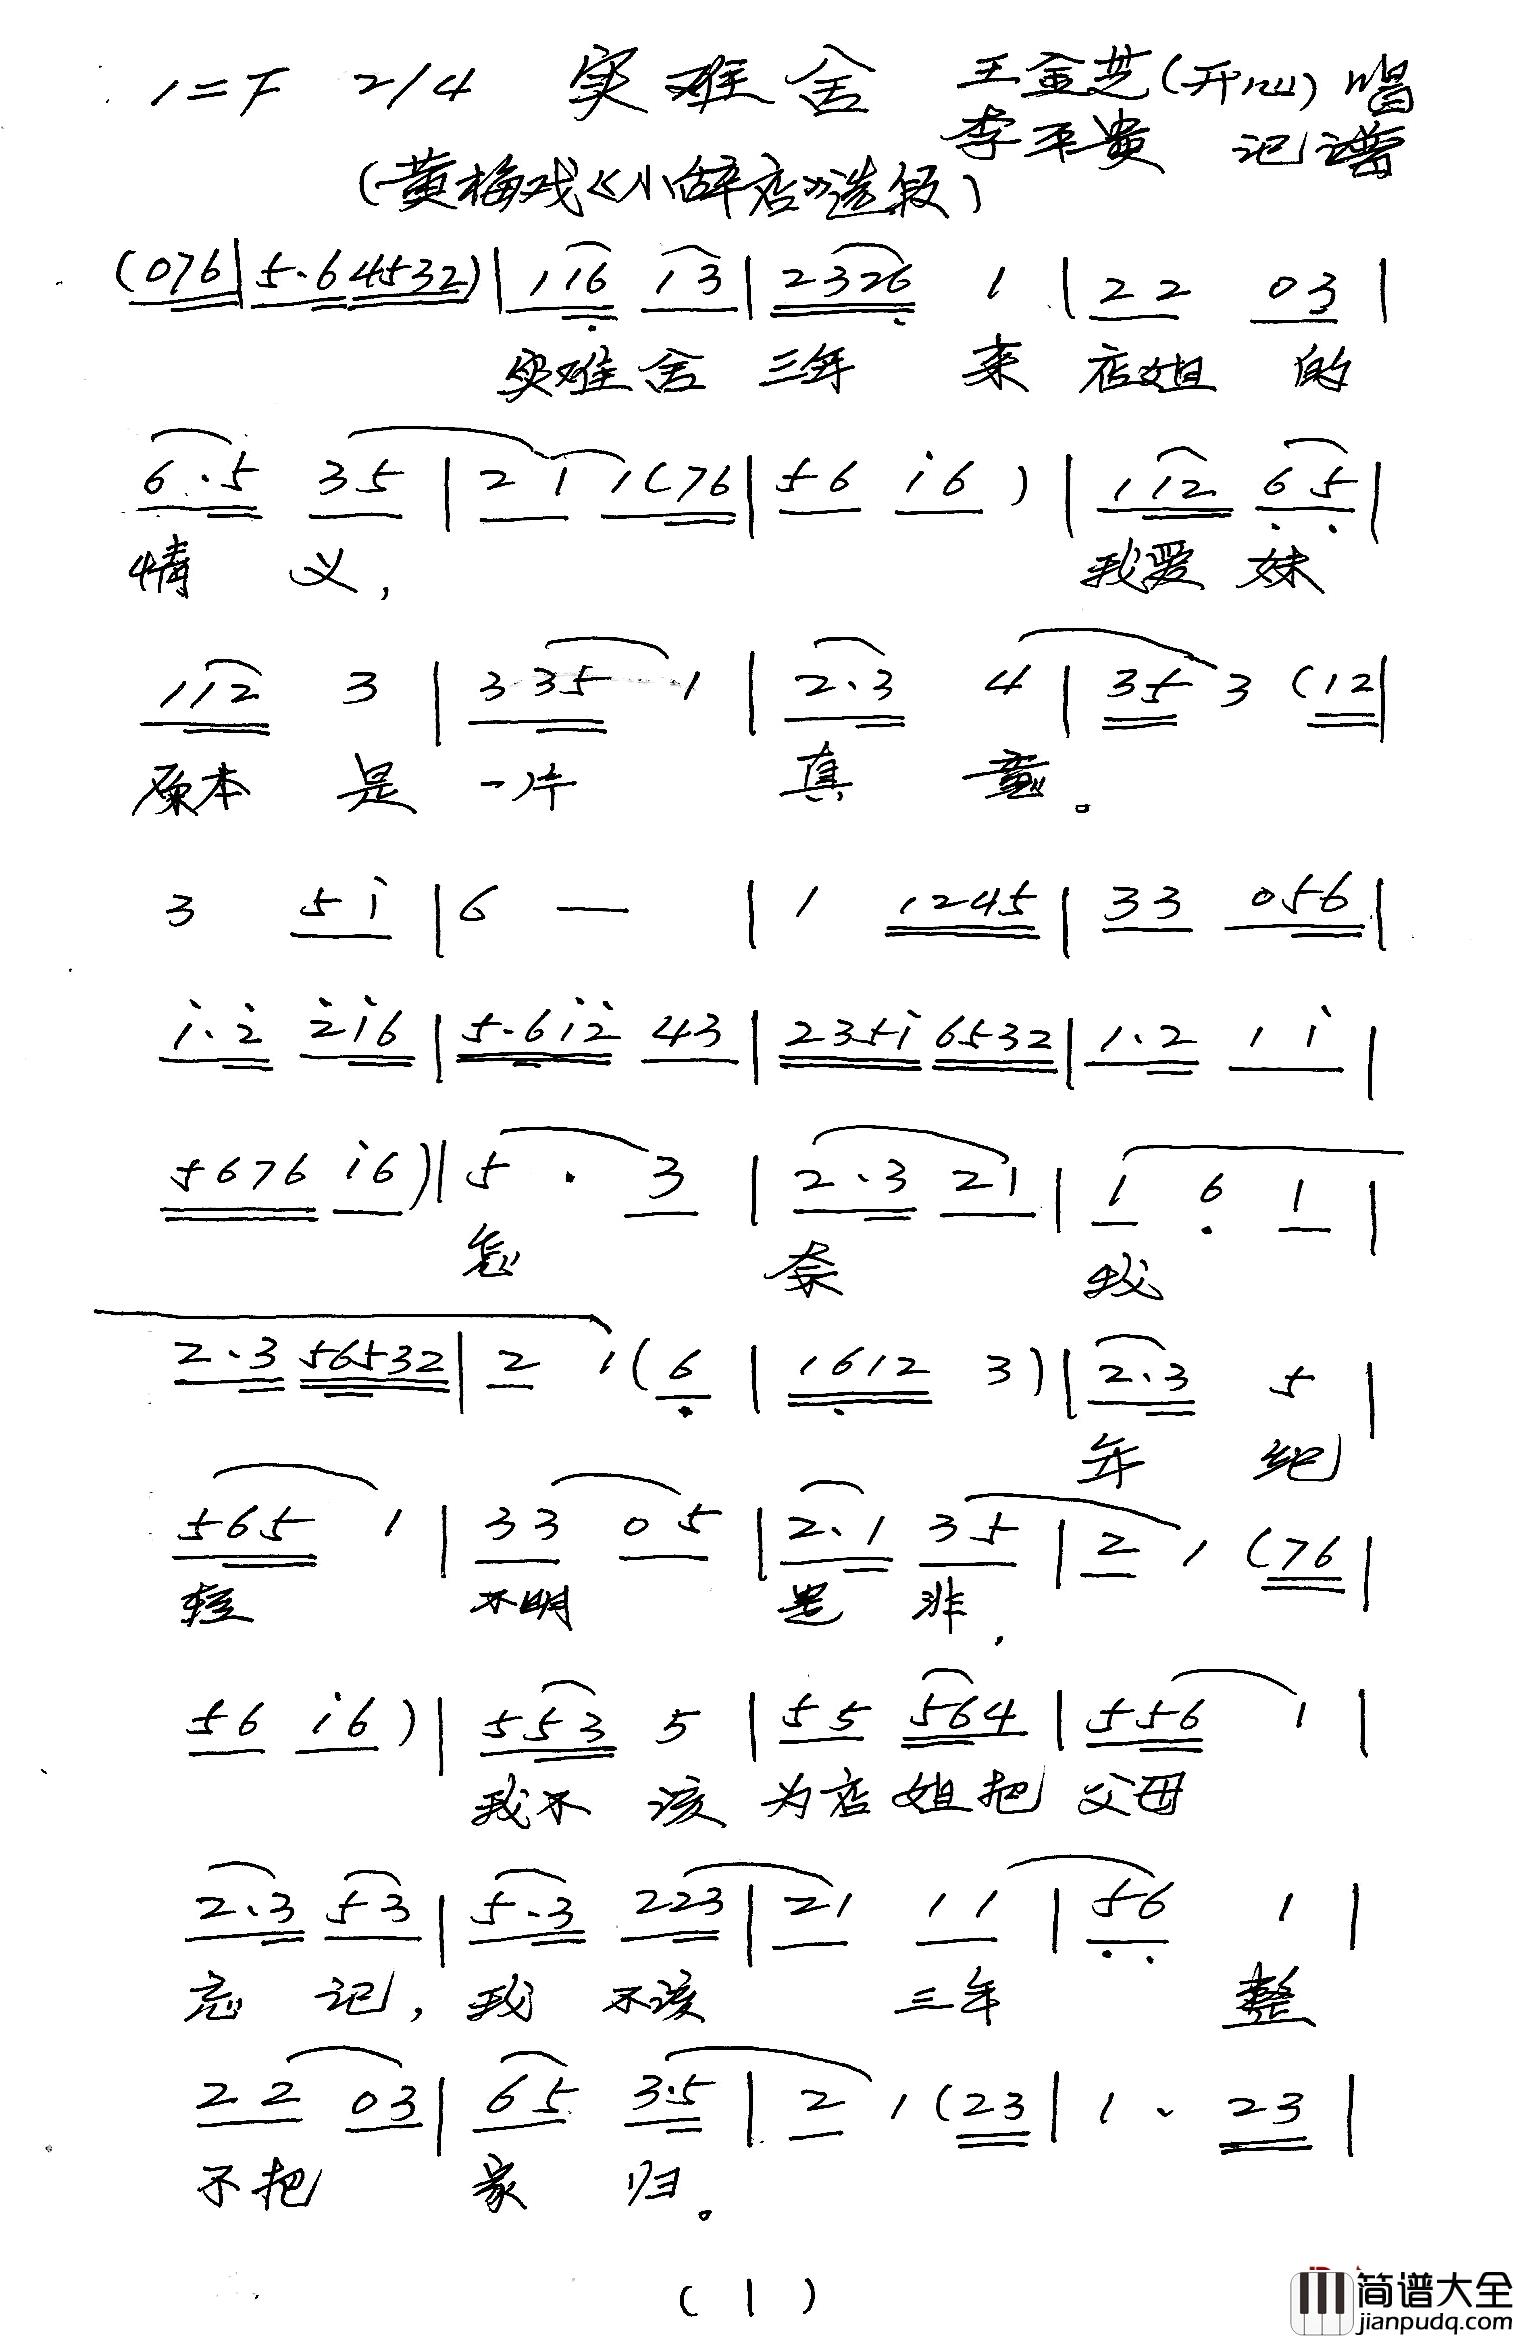 1=F 2/4 实难舍 王金芝(开心)唱
李平贵 记谱
(黄梅戏《小辞店》选段)
(076|5.64532)|116 13|2326 1|22 03|
实难舍 三年 来 店姐 的
6.5 35|21 1(76|56 i6)|112 65|
情 义, 我爱 妹
112 3|335 1|2.3 4|35 3 (12|
原本 是 一片 真 意。
3 5i|6 —|1 1245|33 056|
i.2̇ 2̇i6|5.6i2̇ 43|235i 6532|1.2 1i|
5676 i6)|5 . 3|2.3 21|1 6 1|
怎 奈 我
2.3 56532|2 1(6|1612 3)|2.3 5|
年 纪
565 1|33 05|2.1 35|2 1 (76|
轻 不明 是 非,
56 i6)|553 5|55 564|556 1|
我不 该 为店 姐把 父母
2.3 53|5.3 223|21 11|56 1|
忘 记, 我 不该 三年 整
22 03|65 3.5|2 1(23|1. 23|
不把 家 归。
(1)
简谱大全
jianpudq.com